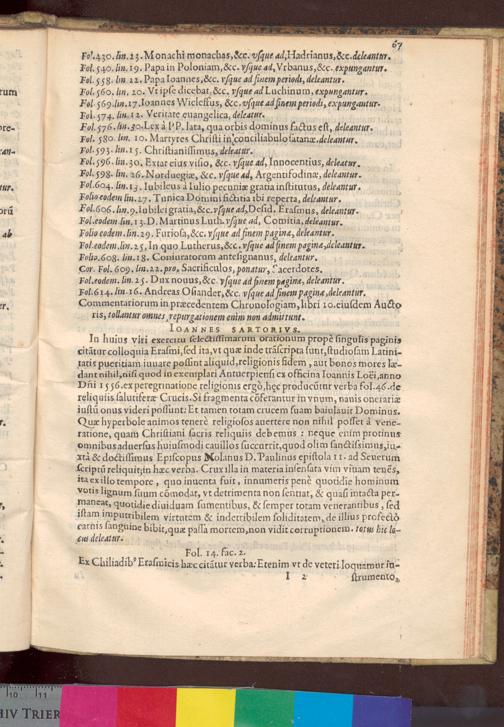 67
Fol.430. lin. 23. Monachi monachas, &c. vsque ad, Hadrianus, &c. deleantur.
Fol.540. lin.19. Papa in Poloniam, &c. vsque ad, Vrbanus, &c. expungantur.
Fol.558. lin 22. Papa Ioannes, &c. vsque ad finem periodi, deleantur.
Fol.560. lin. 20. Vt ipse dicebat, &c. vsque ad Luchinum, expungantur.
Fol.569.lin.17. Ioannes Wiclefsus, &c. vsque ad finem periodi, expungantur.
Fol.574. lin.12. Veritate euangelica, deleatur.
Fol.576.lin.30. Lex à PP. lata, qua orbis dominus factus est, deleantur.
Fol. 580. lin. 10. Martyres Christi in conciliabulo satanæ deleantur.
Fol.593. lin.15. Christianissimus, deleatur.
Fol.596. lin.30. Extat eius visio, &c. vsque ad, Innocentius, deleatur.
Fol.598. lin.26. Norduegiæ, &c. vsque ad, Argentifodinæ, deleantur.
Fol.604. lin.13. Iubileus à Iulio pecuniæ gratia institutus, deleantur.
Folio eodem lin.27. Tunica Domini fictitia ibi reperta, deleantur.
Fol.606. lin.9. Iubilei gratia, &c. vsque ad, Desid. Erasmus, deleantur.
Fol.eodem lin.13. D. Martinus Luth. vsque ad, Comitia, deleantur.
Folio eodem lin.29. Furiosa, &c. vsque ad finem paginæ, deleantur.
Fol.eodem.lin.25. In quo Lutherus, &c. vsque ad finem paginæ, deleantur.
Folio.608. lin.18. Coniuratorum antesignanus, deleantur.
Cor. Fol. 609. lin.22. pro, Sacrificulos, ponatur, Sacerdotes.
Fol.eodem. lin.25. Dux nouus, &c. vsque ad finem paginæ, deleantur.
Fol.614. lin.16. Andreas Osiander, &c. vsque ad finem paginæ, deleantur.
Commentariorum in præcedentem Chronologiam, libri 10. eiusdem Aucto
ris, tollantur omnes, repurgationem enim non admittunt.
IOANNES SARTORIVS.
In huius viti exercitu selectissimarum orationum propè singulis paginis
citãtur colloquia Erasmi, sed ita, vt quæ inde trãscripta sunt, studiosam Latini-
tatis pueritiam iuuare possint aliquid, religionis fidem, aut bonos mores læ-
dant nihil, nisi quod in exemplari Antuerpiensi ex officina Ioannis Loëi, anno
Dñi 1556. ex peregrinatione religionis ergò, hęc producũtur verba fol. 46. de
reliquiis salutiferæ Crucis. Si fragmenta cõferantur in vnum, nauis onerariæ
iustũ onus videri possunt: Et tamen totam crucem suam baiulauit Dominus.
Quæ hyperbole animos tenerè religiosos auertere non nihil posset à vene-
ratione, quam Christiani sacris reliquiis debemus: neque enim protinus
omnibus aduersus huiusmodi cauillos succurrit, quod olim sanctissimus, iu-
xtà & doctissimus Episcopus Nolanus D. Paulinus epistola 11. ad Seuerum
scriptũ reliquit; in hæc verba. Crux illa in materia insensata vim viuam tenẽs,
ita ex illo tempore, quo inuenta fuit, innumeris penè quotidie hominum
votis lignum suum cõmodat, vt detrimenta non sentiat, & quasi intacta per-
maneat, quotidie diuiduam sumentibus, & semper totam venerantibus, sed
istam imputribilem virtutem & indetribilem soliditatem, de illius profectò
carnis sanguine bibit, quæ passa mortem, non vidit corruptionem. totus hic lo-
cus deleatur.
Fol. 14. fac. 2.
Ex Chiliadib° Erasmicis hæc citãtur verba: Etenim vt de veteri loquamur in-
I 2 strumento,
10 11
HIV TRIER